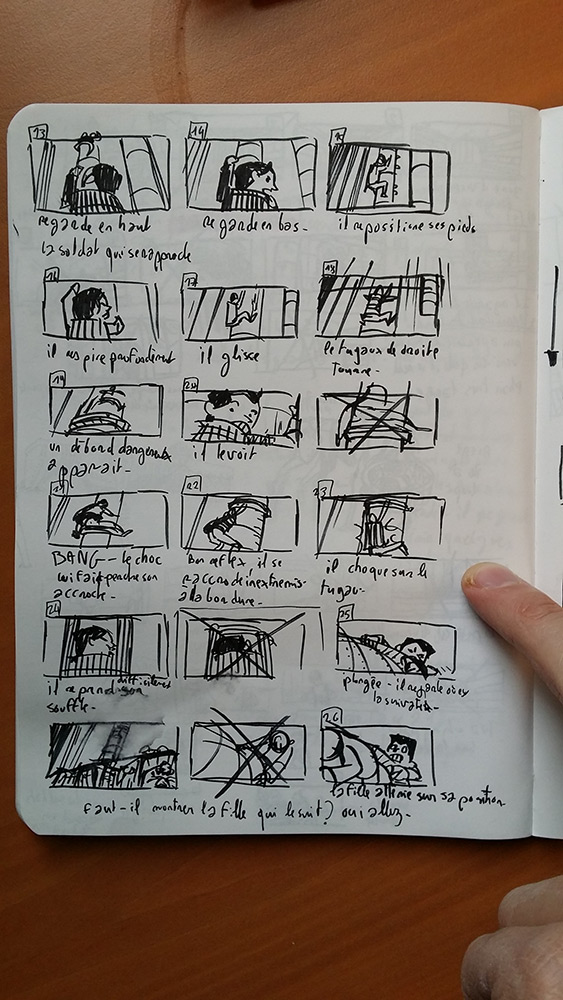 13
14
15
regarde en haut
le soldat qui se rapproche
regarde en bas-
il repositionne ses pieds
16
17
18
il respire profondément
il glisse
le tuyaux de droite
tourne-
19
20
un débord dangereux
apparait-
il le voit
21
22
23
BANG-- le choc
lui fait perdre son
accroche-
Bon reflex, il se
raccroche in extremis
à la bordure-
il choque sur le
tuyau-
24
25
il reprend son
difficilement
souffle-
plongée - il regarde où est
la suivante-
26
la fille atterrie sur sa position
faut-il montrer la fille qui le suit? oui allez-